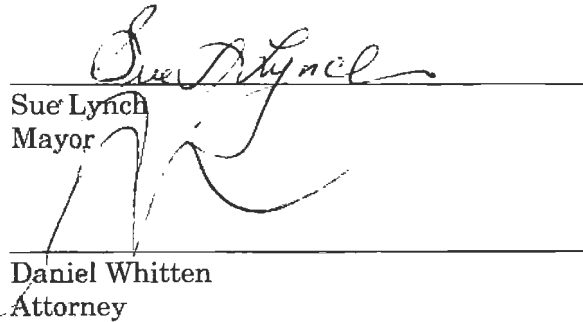 Sue Lynch
Sue Lynch
Mayor
Daniel Whitten
Attorney